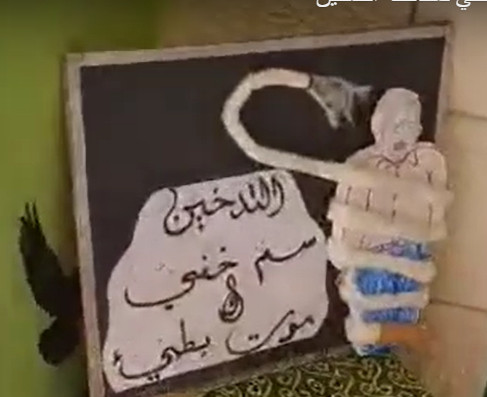 التدخين
سم خفي
و
موت بطيء